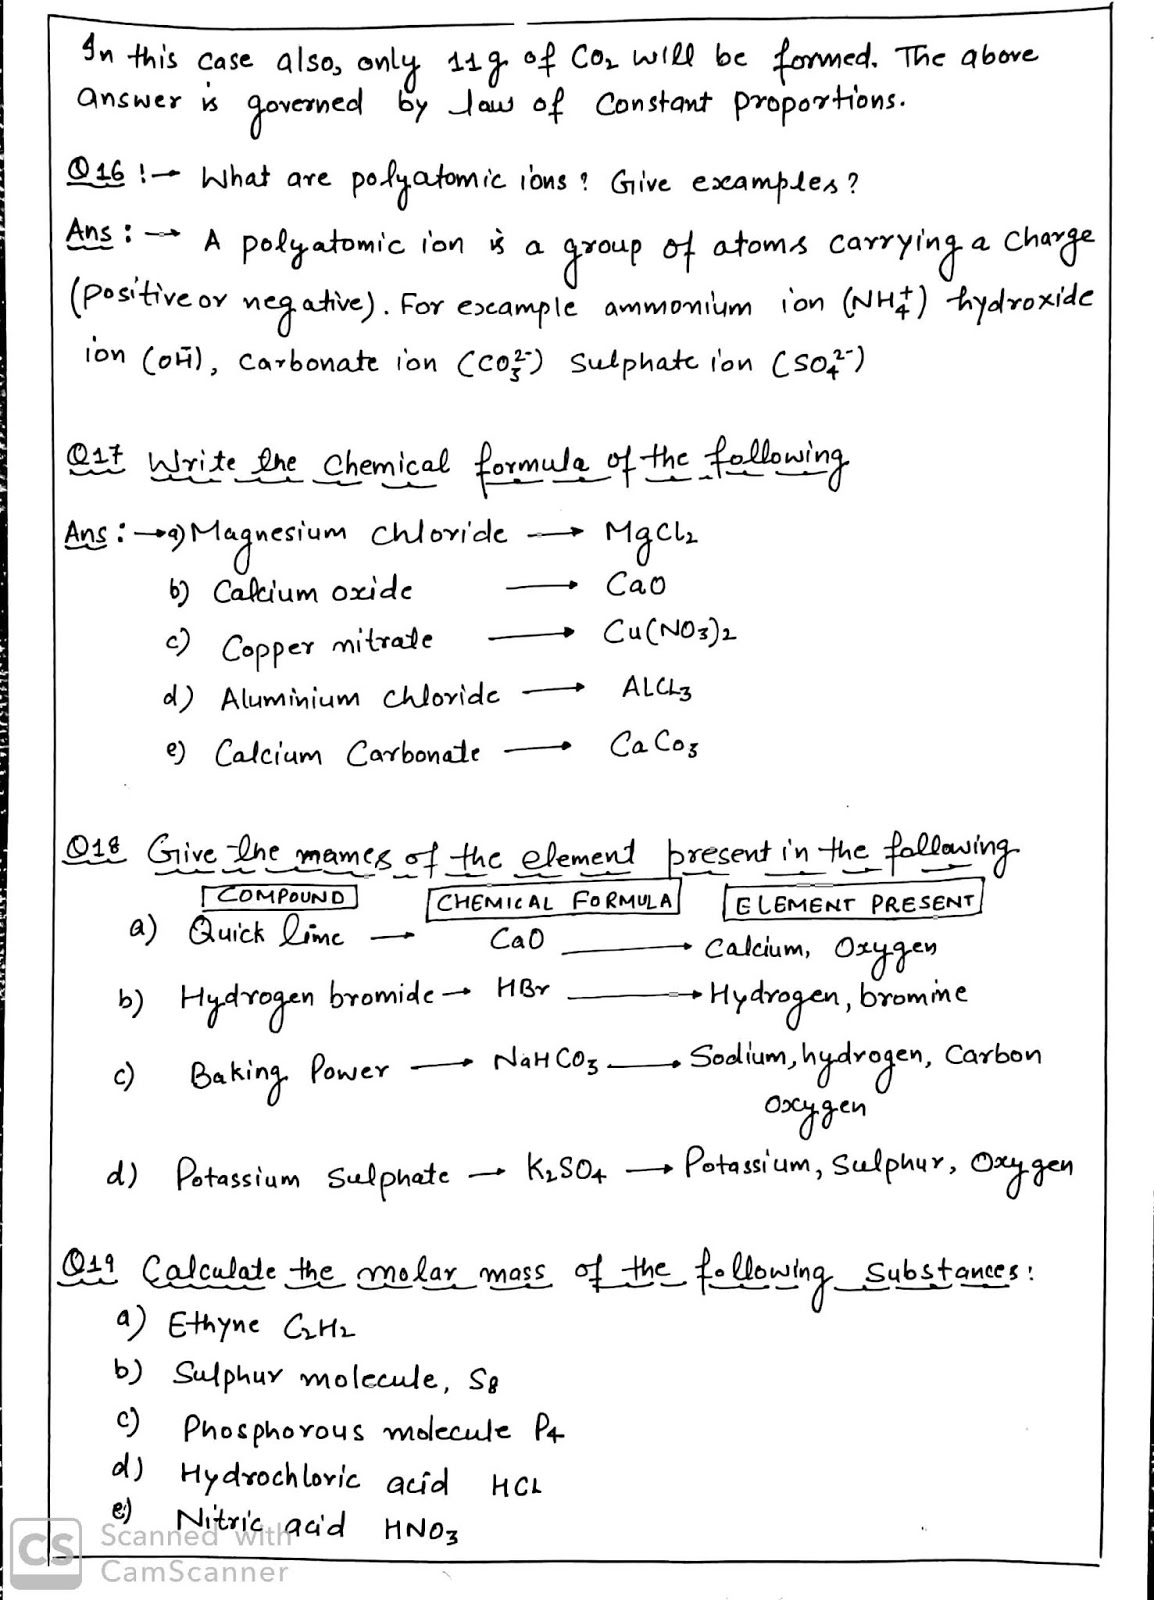 In this case also, only 11g of CO₂ will be formed. The above
answer is governed by law of Constant proportions.
Q16 :→ What are polyatomic ions? Give examples?
Ans :→ A polyatomic ion is a group of atoms carrying a charge
(positive or negative). For example ammonium ion (NH₄⁺) hydroxide
ion (OH⁻), Carbonate ion (CO₃²⁻) Sulphate ion (SO₄²⁻)
Q17 Write the Chemical formula of the following
Ans :→ a) Magnesium Chloride → MgCl₂
b) Calcium oxide → CaO
c) Copper nitrate → Cu(NO₃)₂
d) Aluminium Chloride → ALCL₃
e) Calcium Carbonate → CaCO₃
Q18 Give the names of the element present in the following
COMPOUND CHEMICAL FORMULA ELEMENT PRESENT
a) Quick lime → CaO → Calcium, Oxygen
b) Hydrogen bromide → HBr → Hydrogen, bromine
c) Baking Power → NaHCO₃ → Sodium, hydrogen, Carbon
Oxygen
d) Potassium Sulphate → K₂SO₄ → Potassium, Sulphur, Oxygen
Q19 Calculate the molar mass of the following Substances:
a) Ethyne C₂H₂
b) Sulphur molecule, S₈
c) Phosphorous molecule P₄
d) Hydrochloric acid HCL
e) Nitric acid HNO₃
CS Scanned with
CamScanner